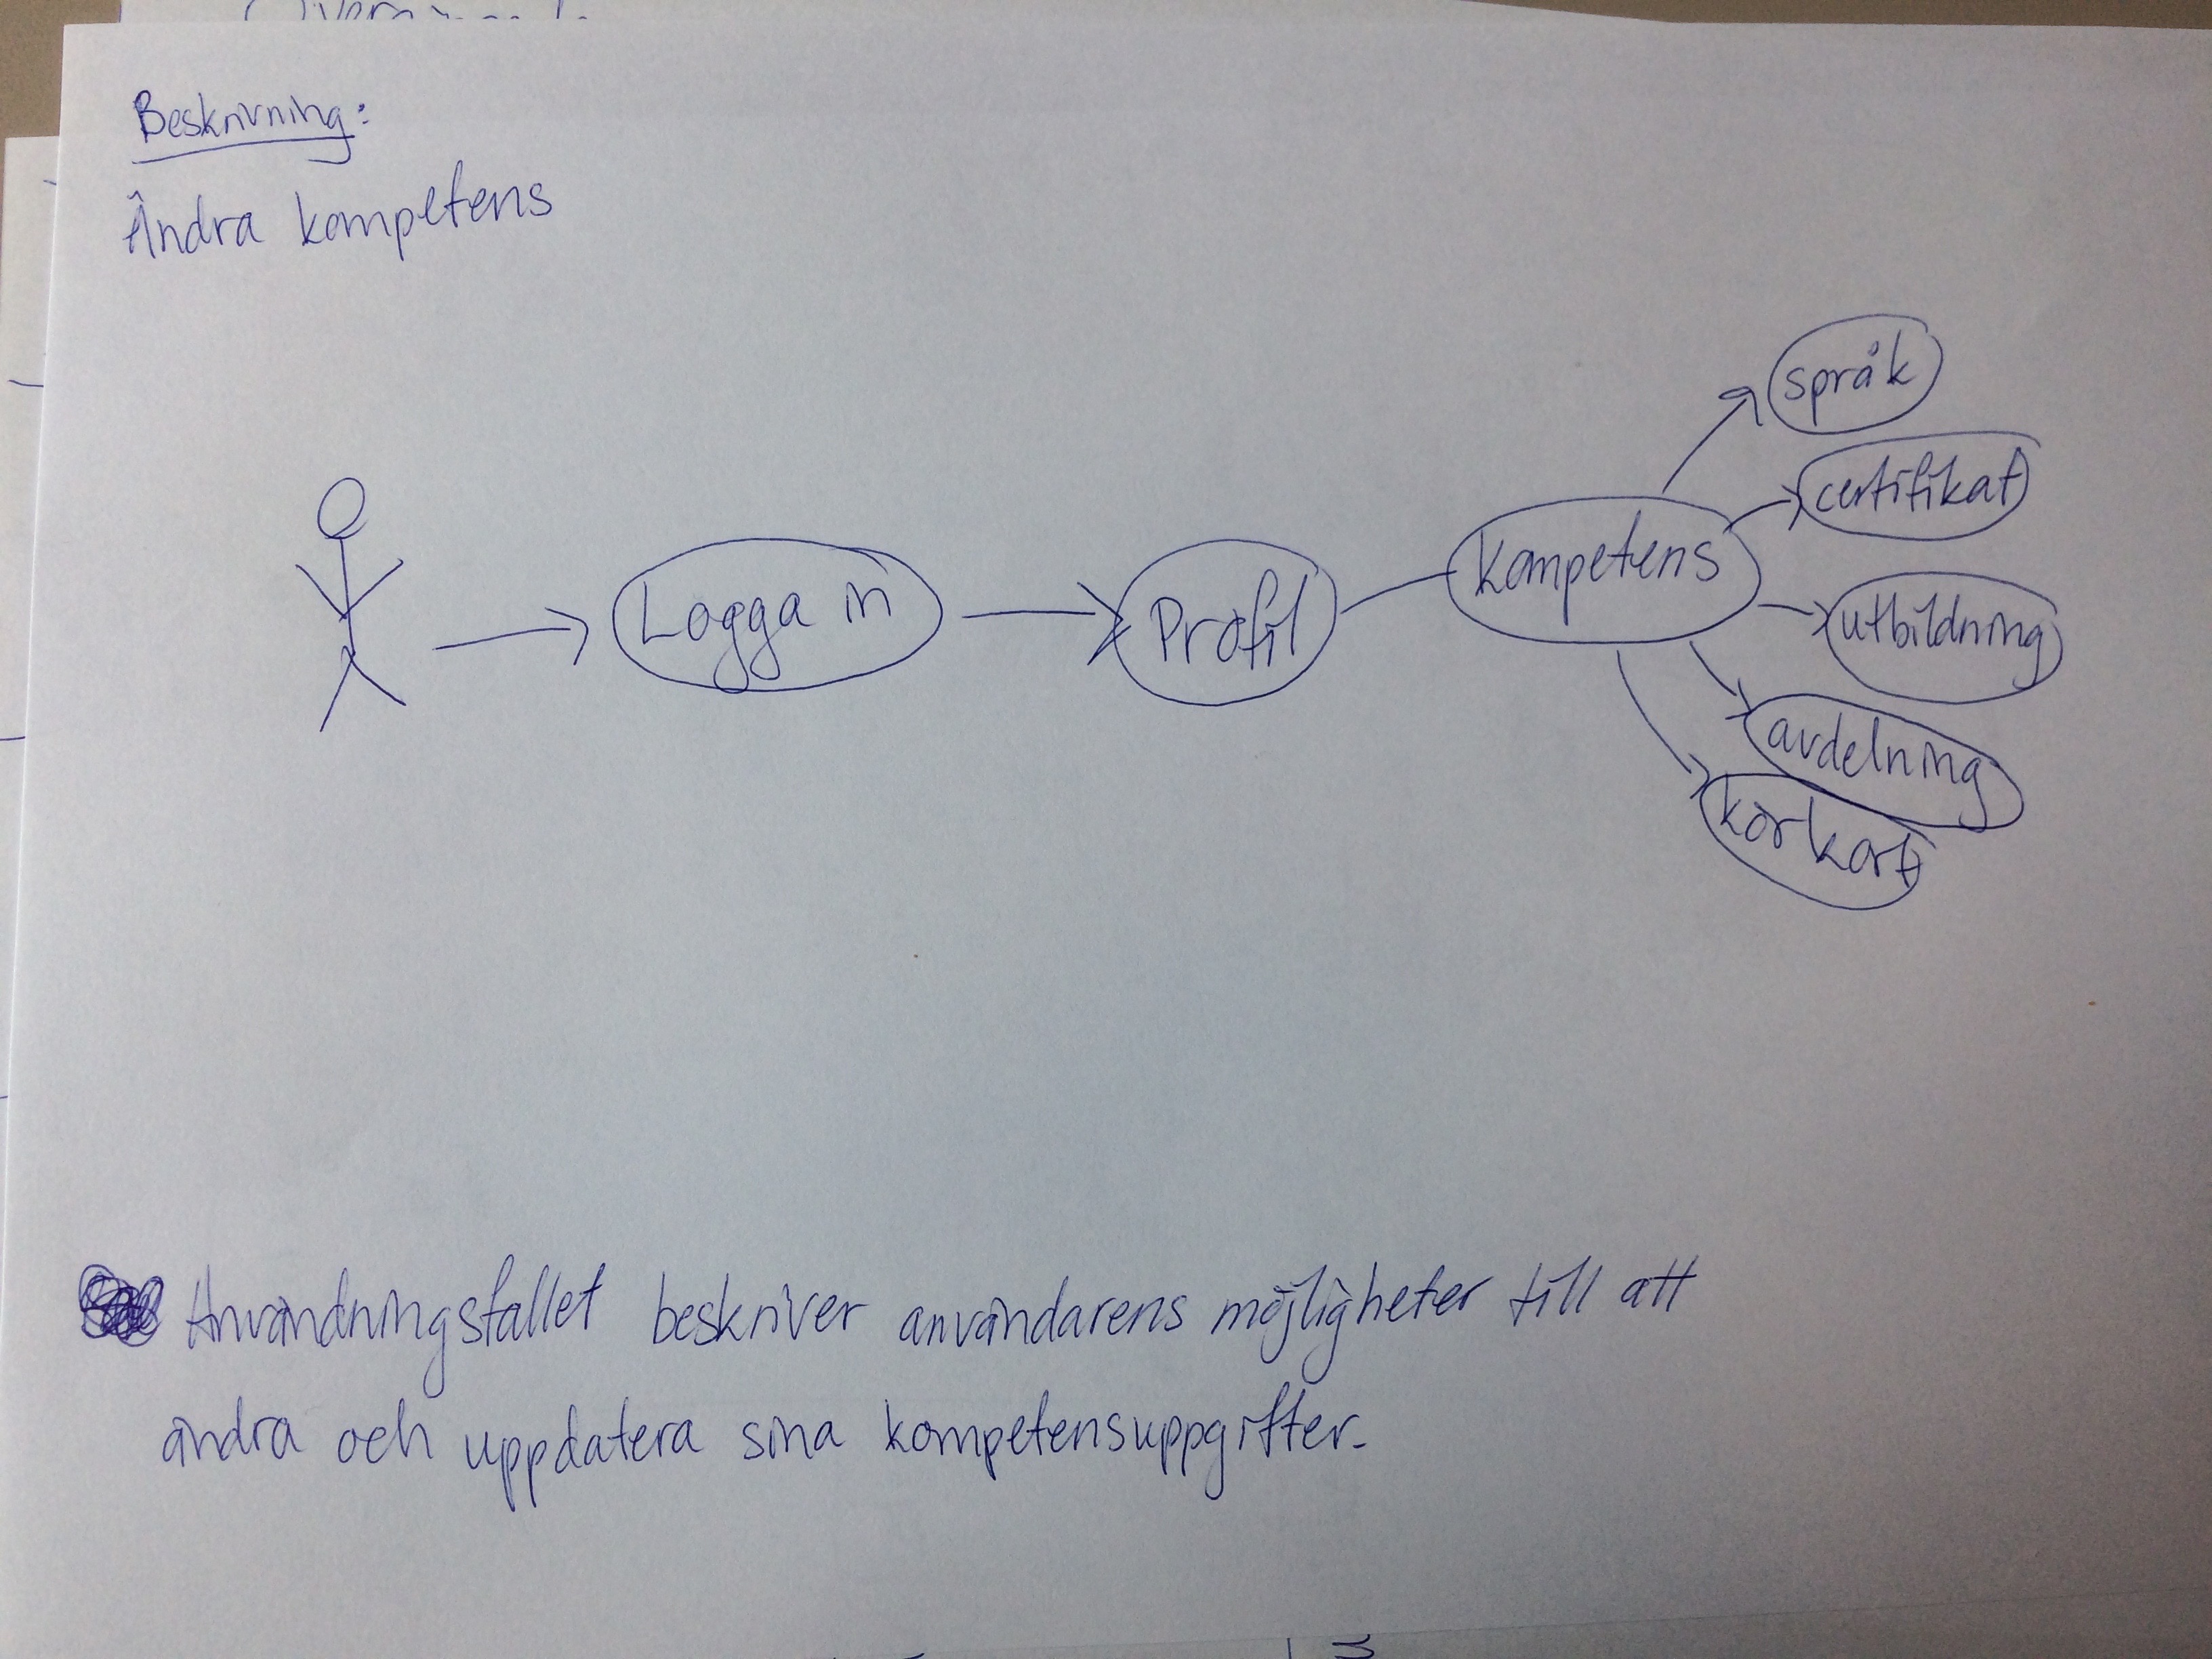 Beskrivning:
Ändra kompetens
språk
certifikat
Logga in
Profil
kompetens
utbildning
avdelning
körkort
Användningsfallet beskriver användarens möjligheter till att
ändra och uppdatera sina kompetensuppgifter.